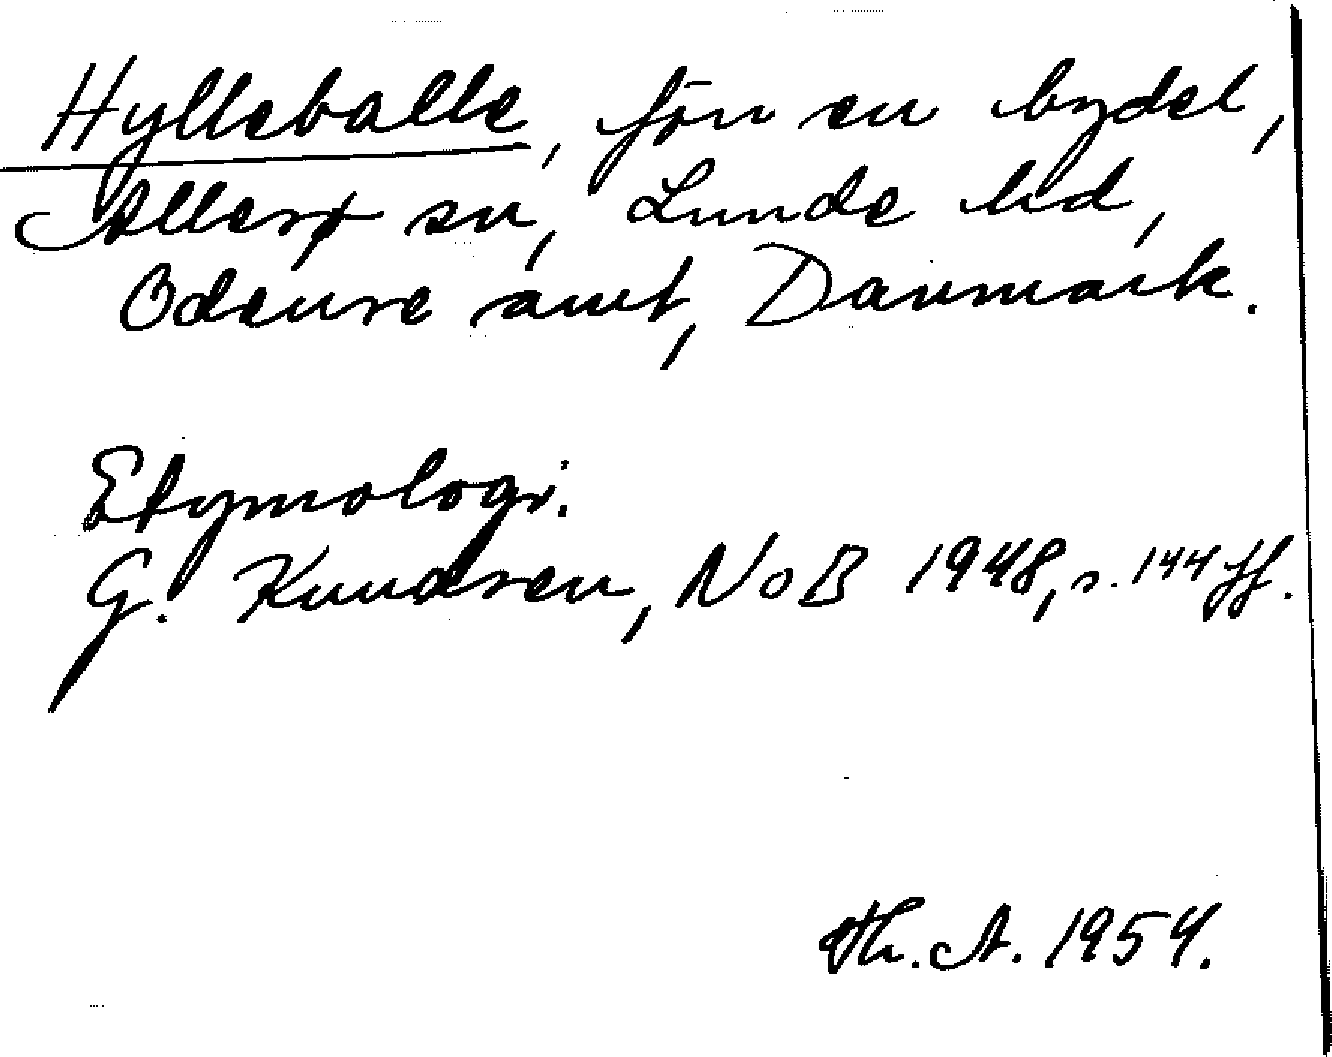 Hylleballe, förr en bydel,
Allesø sn, Lunde hd,
Odense amt, Danmark.
Etymologi.
G. Knudsen, NoB 1948, s. 144 ff.
Th. A. 1954.